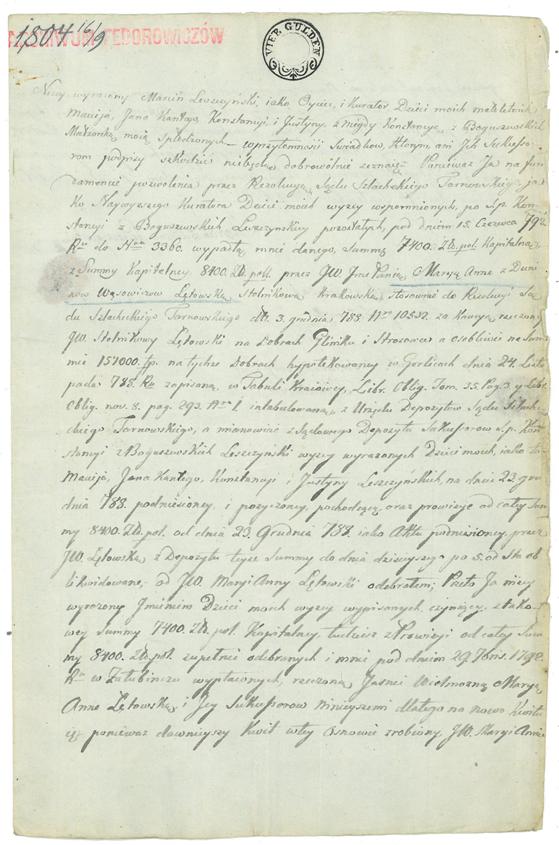 1,804 16/9
FEDOROWICZÓW
VIER GULDEN
Niżey wyrażony Marcin Leszczyński, iako Oyciec, i Kurator Dzieci moich małoletnich
Macieja, Jana Kantego, Konstancyi, i Justyny, z niegdy Konstancyą z Boguszewskich
Małżonką moią Spłodzonych w przytomności Swiadków,
dobrowolnie zeznaię, Ponieważ Ja na fun
zamencie pozwolenia przez Rezolucyą Sądu Szlacheckiego Tarnowskiego, ja
ko Naywyższego Kuratora Dzieci moich wyżey wspomnionych, po Sp. Kon
stancyi z Boguszewskich Leszczyński pozostałych, pod dniem 15. Czerwca 792
Ru do Nru 3360. wypadłą, mnie danego, Summę 7400. Zł. pol. Kapitalną
z Summy Kapitalney 8400. Zł. pol. przez JW. Imć Panią Maryą Annę z Duni
nów Wąsowiczów Łętowską Stolnikową Krakowską, stosownie do Rezolucyi Są
du Szlacheckiego Tarnowskiego dto 3. grudnia 788. Nro 10532. za Kaucyą rzeczoney
JW. Stolnikowy Łętowski na Dobrach Gliniku i Strożowce a osobliwie na Sum
mie 157000. zp. na tychże Dobrach hypotekowaney w Gorlicach dnia 24. Listo
pada 788. Ru zapisaną, w Tabuli Kraiowey, Libr. Oblig. Tom. 55. Pag. 3. y Libr.
Oblig. nov. 8. pag. 293. Nro 1. intabulowaną, z Urzędu Depozytów Sądu Szlache
ckiego Tarnowskiego, a mianowicie z Sądowego Depozytu Sukcessorów Sp. Kon
stancyi z Boguszewskich Leszczyński wyżey wyrażonych Dzieci moich, iako to:
Macieja, Jana Kantego, Konstancyi i Justyny Leszczyńskich, na dniu 23. gru
dnia 788. podniesioney, i pożyczoney, pochodzącą, oraz prowizye od całey Sum
my 8400. Zł. pol. od dnia 23. Grudnia 788. iako Aktu podniesioney przez
JW. Łętowską z Depozytu teyże Summy do dnia dzisieyszego po 5. od Sta ob
likwidowane, od JW. Maryi Anny Łętowski odebrałem; Przeto Ja niżey
wyrażony Imieniem Dzieci moich wyżey wypisanych, czyniący, z tako
wey Summy 7400. Zł. pol. Kapitalney tudzież z Prowizyi od całey Sum
my 8400. Zł. pol. zupełnie odebranych i mnie pod dniem 29. 7bris. 1798.
Ru w Załubinczu wypłaconych, rzeczoną Jaśnie Wielmożną Maryą
Annę Łętowską, i Jey Sukcessorów ninieyszem dlatego na nowo Kwitu
ię ponieważ dawnieyszy Kwit w tey osnowie zrobiony, JW. Maryi Annie